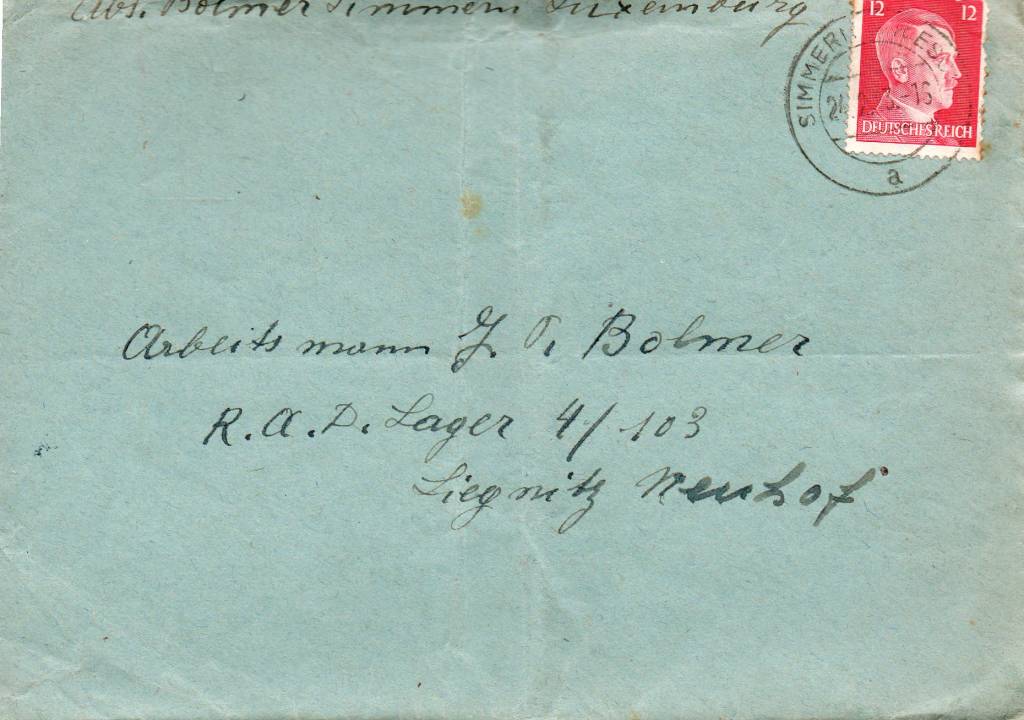 Abs. Bolmer Simmern Luxemburg
12 12
SIMMERN
24
-16
DEUTSCHES REICH
a
Arbeitsmann J. P. Bolmer
R.A.D. Lager 4/103
Liegnitz Neuhof